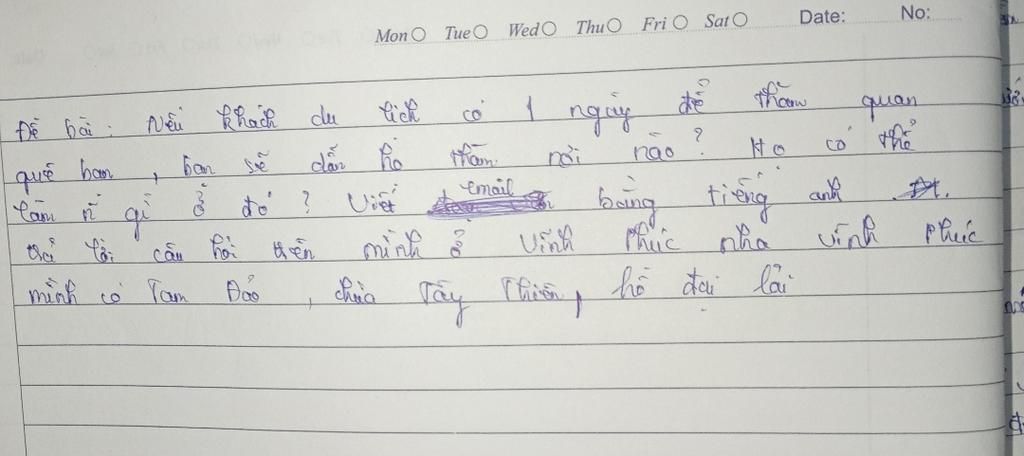 Mon Tue Wed Thu Fri Sat Date: No:
Đề bài: Nếu khách du lịch có 1 ngày để thăm quan
quê bạn, bạn sẽ dẫn họ thăm nơi nào? Họ có thể
làm gì ở đó? Viết email bằng tiếng anh
trả lời câu hỏi trên mình ở Vĩnh Phúc nha Vĩnh Phúc
mình có Tam Đảo, chùa Tây Thiên, hồ đại lải